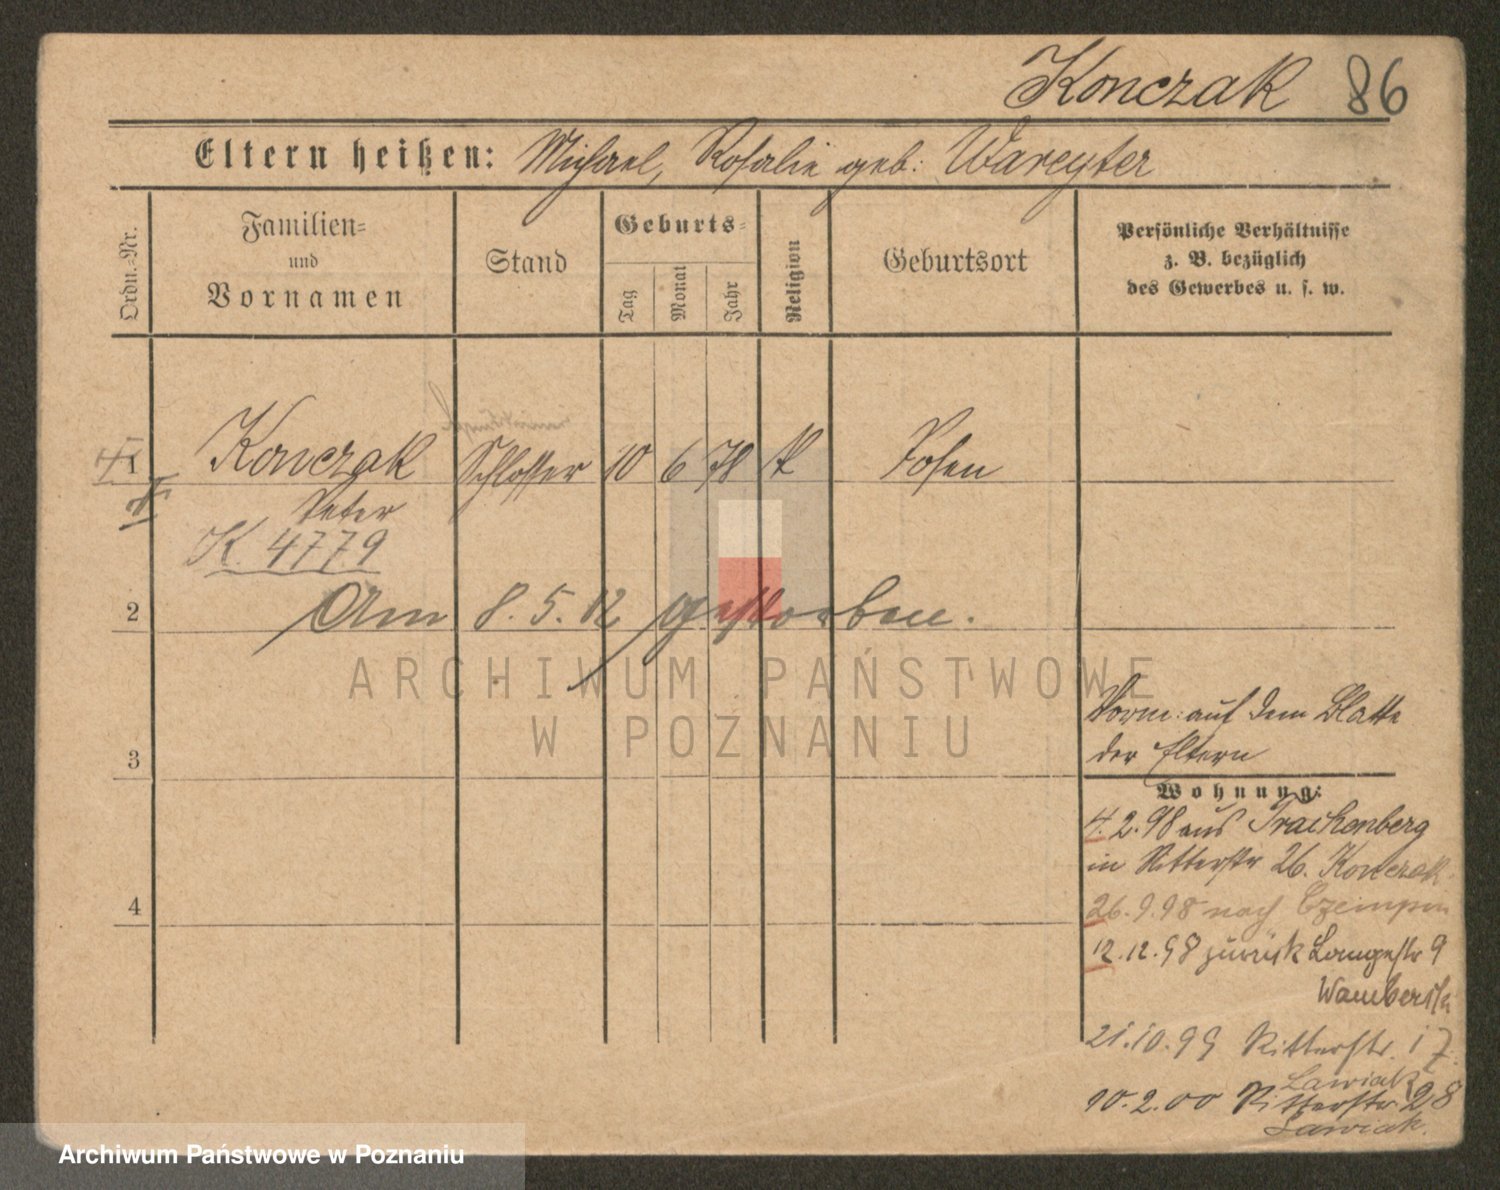 Konczak 86
Eltern heißen: Michael, Rosalie geb: Wareyter
Ordn.-Nr.
Familien- und Vornamen
Stand
Geburts-
Tag
Monat
Jahr
Religion
Geburtsort
Persönliche Verhältnisse
z. B. bezüglich
des Gewerbes u. s. w.
1 Konczak Schlosser 10 6 78 k Posen
Peter
K. 4779
2 Am 8. 5. 12 gestorben.
ARCHIWUM PAŃSTWOWE
W POZNANIU
Vorm: auf dem Blatte
3 der Eltern
Wohnung:
4.2.98 aus Trachenberg
in Ritterstr 26. Konczak
4 26.9.98 nach Czempin
12.12.98 zurück Langestr 9
21.10.99 Ritterstr. 17.
Lawiak
10.2.00 Ritterstr. 28
Lawiak.
Archiwum Państwowe w Poznaniu